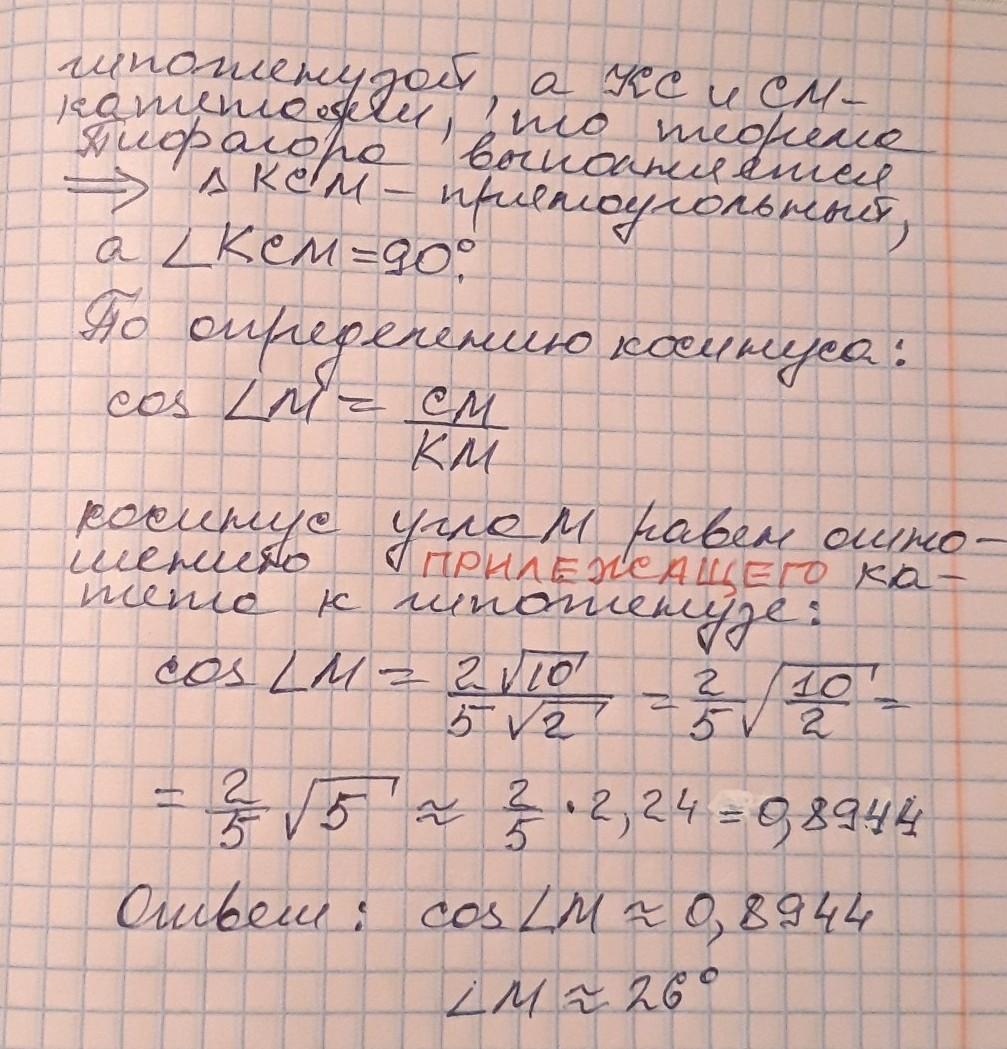 гипотенузой, а KC и CM-
катетами, то теорема
Пифагора выполняется
⇒ ΔKCM - прямоугольный,
а ∠KCM = 90°.
По определению косинуса:
cos ∠M = CM/KM
косинус угла M равен отно-
шению ПРИЛЕЖАЩЕГО ка-
тета к гипотенузе:
cos ∠M = 2√10/5√2 = 2/5 √10/2 =
= 2/5 √5 ≈ 2/5 · 2,24 = 0,8944
Ответ: cos ∠M ≈ 0,8944
∠M ≈ 26°